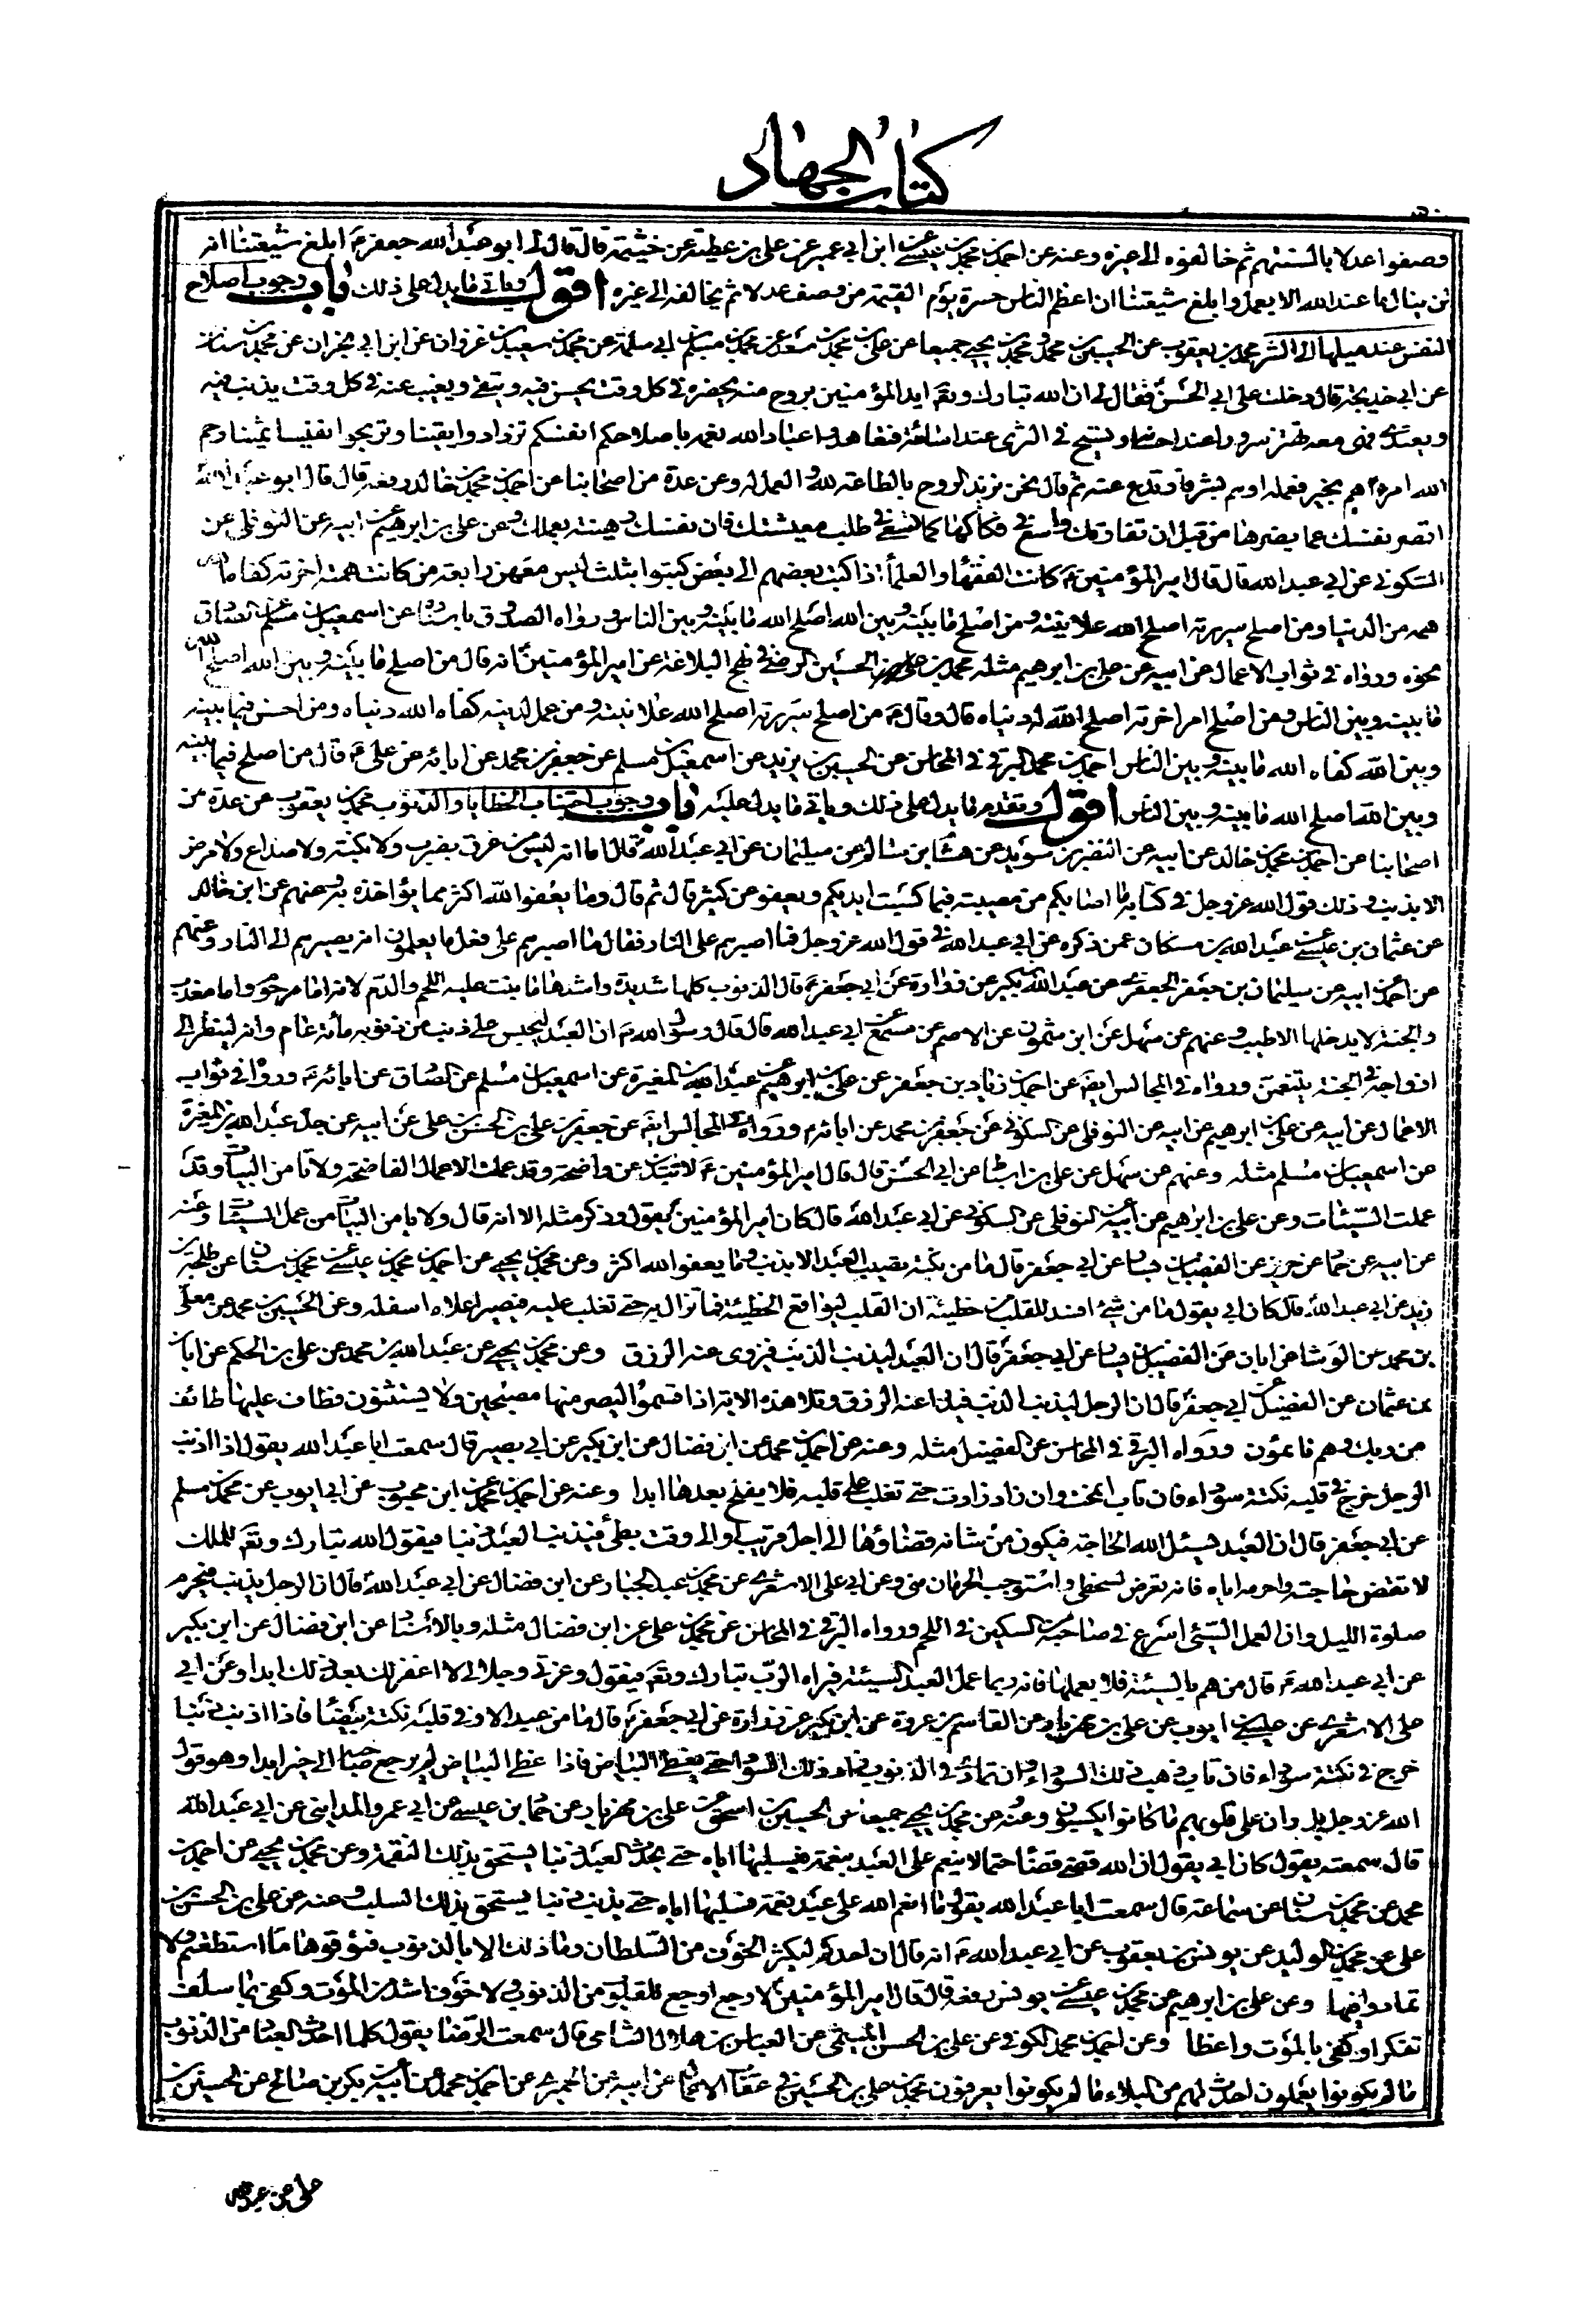 كتاب الجهاد
وصفوا عدلا بالسنتهم ثم خالفوه الى غيره وعنه عن احمد بن محمد بن عيسى عن ابن ابي عمير عن علي بن عطية عن خيثمة قال قال لى ابو عبد الله جعفر ع ابلغ شيعتنا انه
لن ينال ما عند الله الا بعمل وابلغ شيعتنا ان اعظم الناس حسرة يوم القيمة من وصف عدلا ثم يخالفه الى غيره اقول وياتي ما يدل على ذلك باب وجوب اصلاح
النفس عند ميلها الى الشر محمد بن يعقوب عن الحسين بن محمد ومحمد بن يحيى جميعا عن علي بن محمد بن سعد عن محمد بن مسلم بن ابي سلمة عن محمد بن سعيد بن غزوان عن ابن ابي نجران عن محمد بن سنان
عن ابي خديجة قال دخلت على ابي الحسن فقال لى ان الله تبارك وتع ايد المؤمنين بروح منه يحضره في كل وقت يحسن فيه ويتقى ويغيب عنه في كل وقت يذنب فيه
ويعتدى فهى معه تهتز سرورا عند احسانه وتسيخ في الثرى عند اسائته فتعاهدوا عباد الله نعمه باصلاحكم انفسكم تزدادوا يقينا وتربحوا نفيسا ثمينا رحم
الله امرءا هم بخير فعمله اوهم بشر فارتدع عنه ثم قال نحن نزيد الروح بالطاعة لله والعمل له وعن عدة من اصحابنا عن احمد بن محمد بن خالد رفعه قال قال ابو عبد الله
اقصر نفسك عما يضرها من قبل ان تفارقك واسع في فكاكها كما تسعى في طلب معيشتك فان نفسك رهينة بعملك وعن علي بن ابرهيم عن ابيه عن النوفلي عن
السكوني عن ابي عبد الله قال قال امير المؤمنين ع كانت الفقهاء والعلماء اذا كتب بعضهم الى بعض كتبوا بثلث ليس معهن رابعة من كانت همته اخرته كفاه الله
همه من الدنيا ومن اصلح سريرته اصلح الله علانيته ومن اصلح ما بينه وبين الله اصلح الله ما بينه وبين الناس ورواه الصدوق باسناده عن اسمعيل بن مسلم عن الصادق
نحوه ورواه في ثواب الاعمال عن ابيه عن علي بن ابرهيم مثله محمد بن الحسين الرضي في نهج البلاغة عن امير المؤمنين انه قال من اصلح ما بينه وبين الله اصلح الله
ما بينه وبين الناس ومن اصلح امر اخرته اصلح الله له دنياه قال وقال ع من اصلح سريرته اصلح الله علانيته ومن عمل لدينه كفاه الله دنياه ومن احسن فيما بينه
وبين الله كفاه الله ما بينه وبين الناس احمد بن محمد البرقي في المحاسن عن الحسين بن يزيد عن اسمعيل بن مسلم عن جعفر بن محمد عن ابائه عن علي ع قال من اصلح فيما بينه
وبين الله اصلح الله ما بينه وبين الناس اقول وتقدم ما يدل على ذلك وياتي ما يدل عليه باب وجوب اجتناب الخطايا والذنوب محمد بن يعقوب عن عدة من
اصحابنا عن احمد بن محمد بن خالد عن ابيه عن النضر بن سويد عن هشام بن سالم عن ابي عبد الله قال اما انه ليس من عرق يضرب ولا نكبة ولا صداع ولا مرض
الا بذنب وذلك قول الله عز وجل في كتابه ما اصابكم من مصيبة فبما كسبت ايديكم ويعفو عن كثير قال ثم قال وما يعفوا الله اكثر مما يؤاخذ به وعنهم عن ابن خالد
عن عثمان بن عيسى عن عبد الله بن مسكان عمن ذكره عن ابي عبد الله في قول الله عز وجل فما اصبرهم على النار فقال ما اصبرهم على فعل ما يعلمون انه يصيرهم الى النار وعنهم
عن احمد عن ابيه عن سليمان بن جعفر الجعفري عن عبد الله بن بكير عن زرارة عن ابي جعفر ع قال الذنوب كلها شديدة واشدها ما نبت عليه اللحم والدم لانه اما مرحوم واما معذب
والجنة لا يدخلها الا طيب وعنهم عن سهل عن ابن شمون عن الاصم عن مسمع عن ابي عبد الله قال قال رسول الله ص ان العبد ليحبس على ذنب من ذنوبه مأة عام وانه لينظر الى
ازواجه في الجنة يتنعمن ورواه في المجالس ايضا عن احمد بن زياد بن جعفر عن علي بن ابرهيم عن عبد الله بن المغيرة عن اسمعيل بن مسلم عن الصادق عن ابائه ع ورواه في ثواب
الاعمال عن ابيه عن علي بن ابرهيم عن ابيه عن النوفلي عن السكوني عن جعفر بن محمد عن ابائه ورواه في المجالس ايضا عن جعفر بن علي بن الحسن بن علي عن ابيه عن جده عبد الله بن المغيرة
عن اسمعيل بن مسلم مثله وعنهم عن سهل عن علي بن اسباط عن ابي الحسن قال قال امير المؤمنين ع لا تبدين عن واضحة وقد عملت الاعمال الفاضحة ولا تامن البيات وقد
عملت السيئات وعن علي بن ابراهيم عن ابيه عن النوفلي عن السكوني عن ابي عبد الله قال كان امير المؤمنين يقول وذكر مثله الا انه قال ولا يامن البيات من عمل السيئات وعنه
عن ابيه عن حماد عن حريز عن الفضيل بن يسار عن ابي جعفر قال ما من نكبة يصيب العبد الا بذنب وما يعفوا الله اكثر وعن محمد بن يحيى عن احمد بن محمد بن عيسى عن محمد بن سنان عن طلحة بن
زيد عن ابي عبد الله قال كان ابي يقول ما من شئ افسد للقلب من خطيئة ان القلب ليواقع الخطيئة فما تزال به حتى تغلب عليه فيصير اعلاه اسفله وعن الحسين بن محمد عن معلى
بن محمد عن الوشا عن ابان عن الفضيل بن يسار عن ابي جعفر قال ان العبد ليذنب الذنب فيزوى عنه الرزق وعن محمد بن يحيى عن عبد الله بن محمد عن علي بن الحكم عن ابان
بن عثمان عن الفضيل عن ابي جعفر قال ان الرجل ليذنب الذنب فيدرأ عنه الرزق وتلا هذه الاية اذا قسموا ليصرمنها مصبحين ولا يستثنون فطاف عليها طائف
من ربك وهم نائمون ورواه البرقي في المحاسن عن الفضيل مثله وعنه عن احمد بن محمد عن ابن فضال عن ابن بكير عن ابي بصير قال سمعت ابا عبد الله يقول اذا اذنب
الرجل خرج في قلبه نكتة سوداء فان تاب انمحت وان زاد زادت حتى تغلب على قلبه فلا يفلح بعدها ابدا وعنه عن احمد بن محمد عن ابن محبوب عن ابي ايوب عن محمد بن مسلم
عن ابي جعفر قال ان العبد يسئل الله الحاجة فيكون من شانه قضاؤها الى اجل قريب او الى وقت بطئ فيذنب العبد ذنبا فيقول الله تبارك وتع للملك
لا تقض حاجته واحرمه اياه فانه تعرض لسخطي واستوجب الحرمان مني وعن ابي علي الاشعري عن محمد بن عبد الجبار عن ابن فضال عن ابي عبد الله قال ان الرجل يذنب فيحرم
صلوة الليل وان العمل السيئ اسرع في صاحبه من السكين في اللحم ورواه البرقي في المحاسن عن محمد بن علي عن ابن فضال مثله وبالاسناد عن ابن فضال عن ابن بكير
عن ابي عبد الله ع قال من هم بالسيئة فلا يعملها فانه ربما عمل العبد السيئة فيراه الرب تبارك وتع فيقول وعزتي وجلالي لا اغفر لك بعد ذلك ابدا وعن ابي
علي الاشعري عن عيسى بن ايوب عن علي بن مهزيار عن القاسم بن عروة عن ابن بكير عن زرارة عن ابي جعفر ع قال ما من عبد الا وفي قلبه نكتة بيضاء فاذا اذنب ذنبا
خرج في نكتة سوداء فان تاب ذهب ذلك السواد وان تمادى في الذنوب زاد ذلك السواد حتى يغطى البياض فاذا غطى البياض لم يرجع صاحبه الى خير ابدا وهو قول
الله عز وجل بل ران على قلوبهم ما كانوا يكسبون وعنه عن محمد بن يحيى جميعا عن الحسين بن اسحق عن علي بن مهزيار عن حماد بن عيسى عن ابي عمرو المدايني عن ابي عبد الله
قال سمعته يقول كان ابي يقول ان الله قضى قضاء حتما لا ينعم على العبد بنعمة فيسلبها اياه حتى يحدث العبد ذنبا يستحق بذلك النقمة وعن محمد بن يحيى عن احمد بن
محمد عن محمد بن سنان عن سماعة قال سمعت ابا عبد الله يقول ما انعم الله على عبد نعمة فسلبها اياه حتى يذنب ذنبا يستحق بذلك السلب وعنه عن علي بن الحسن بن
علي عن محمد بن الوليد عن يونس بن يعقوب عن ابي عبد الله ع انه قال ان احدكم ليكثر الخوف من السلطان وما ذلك الا بالذنوب فتوقوها ما استطعتم ولا
تمادوا فيها وعن علي بن ابرهيم عن محمد بن عيسى عن يونس رفعه قال قال امير المؤمنين لا وجع اوجع للقلوب من الذنوب ولا خوف اشد من الموت وكفى بما سلف
تفكرا وكفى بالموت واعظا وعن احمد بن محمد الكوفي عن علي بن الحسن الميثمي عن العباس بن هلال الشامي قال سمعت الرضا يقول كلما احدث العباد من الذنوب
ما لم يكونوا يعملون احدث لهم من البلاء ما لم يكونوا يعرفون محمد بن علي بن الحسين في عقاب الاعمال عن ابيه عن الحميري عن احمد بن محمد عن ابيه عن بكر بن صالح عن الحسين بن
علي عن عبد الله